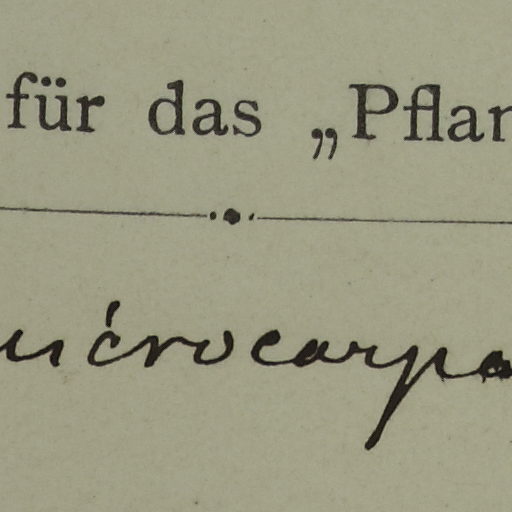 für das „Pflan
microcarpa